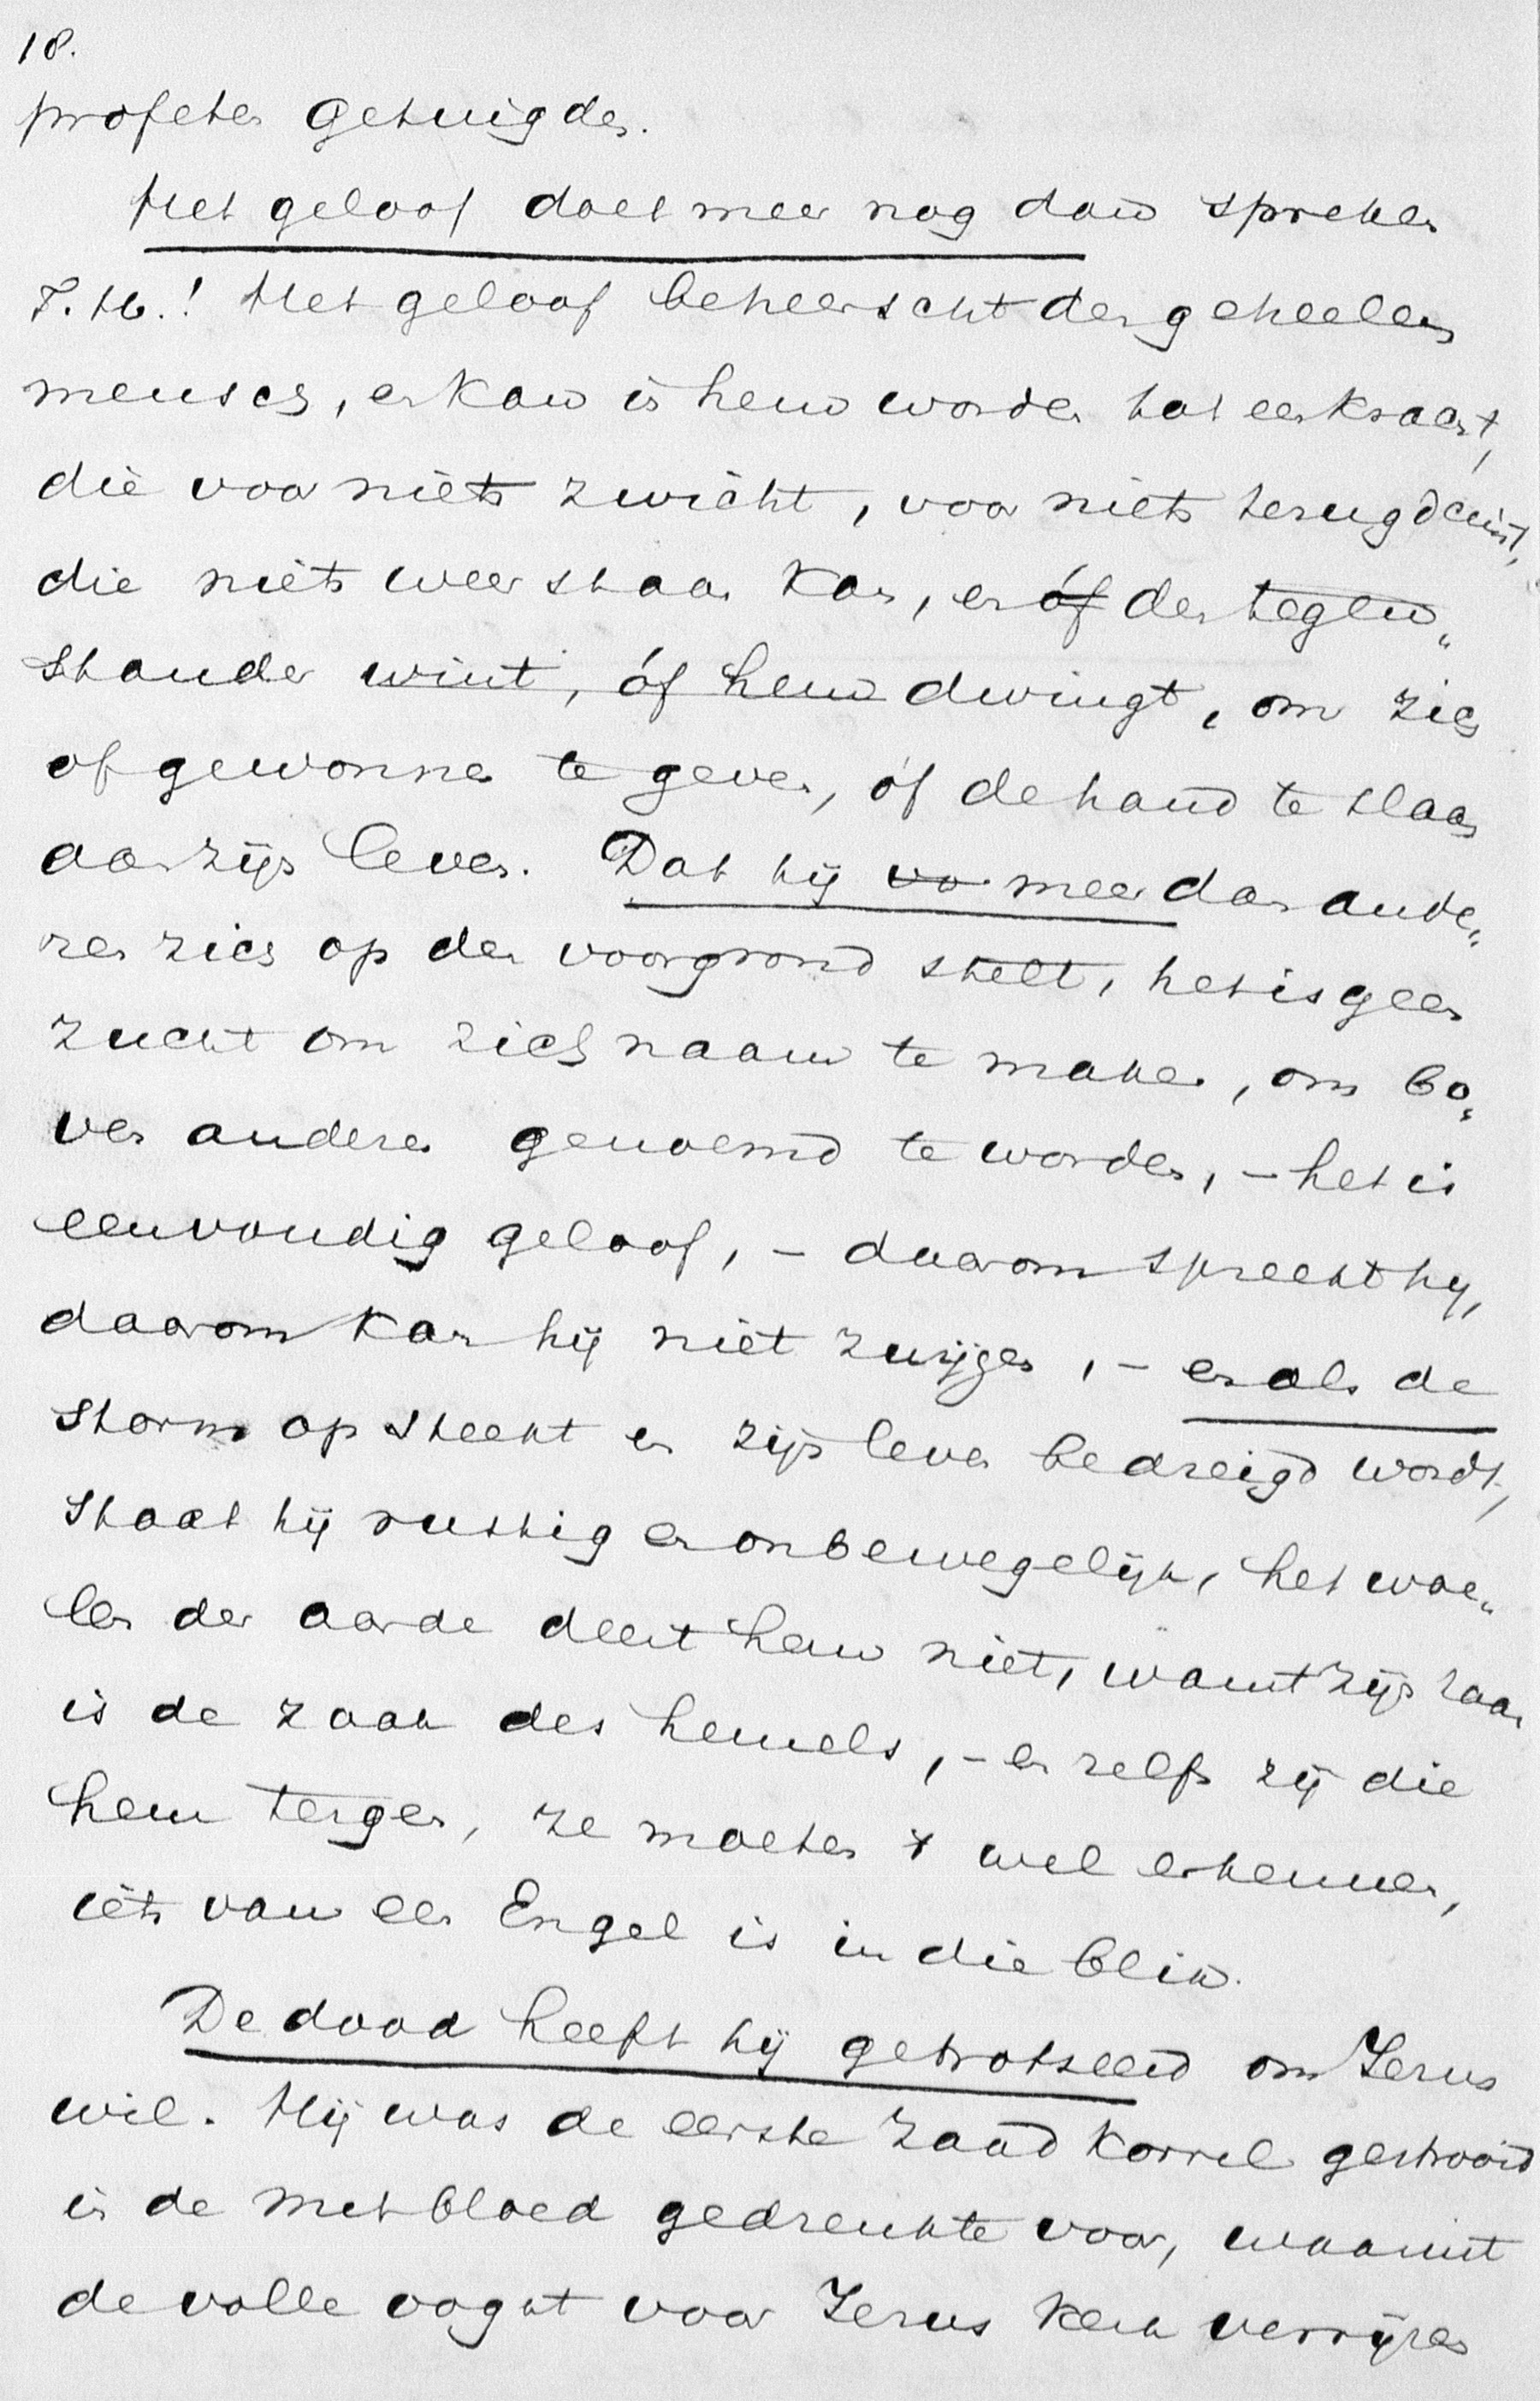 18.
profeten getuigden.
Het geloof doet meer nog dan spreken
T. H.! Het geloof beheerscht den geheelen
mensch, en kan in hem worden tot een kracht,
die voor niets zwicht, voor niets terugdeinst,
die niets weerstaan kan, en óf den tegen„
stander wint, óf hem dwingt, om zich
of gewonnen te geven, óf de hand te slaan
aan zijn leven. Dat hij vo meer dan ande„
ren zich op den voorgrond stelt, het is geen
zucht om zich naam te maken, om bo„
ven anderen genoemd te worden, – het is
eenvoudig geloof, – daarom spreekt hij,
daarom kan hij niet zwijgen, – en als de
storm opsteekt en zijn leven bedreigd wordt,
staat hij rustig en onbewegelijk, het woe„
len der aarde deert hem niet, want zijn zaak
is de zaak des hemels, – en zelfs zij die
hem tergen, ze moeten wel erkennen,
iets van een Engel is in die blik.
De dood heeft hij getrotseerd om Jezus
wil. Hij was de eerste zaadkorrel gestrooid
in de met bloed gedrenkte voor, waaruit
de volle oogst voor Jezus kerk verrijzen